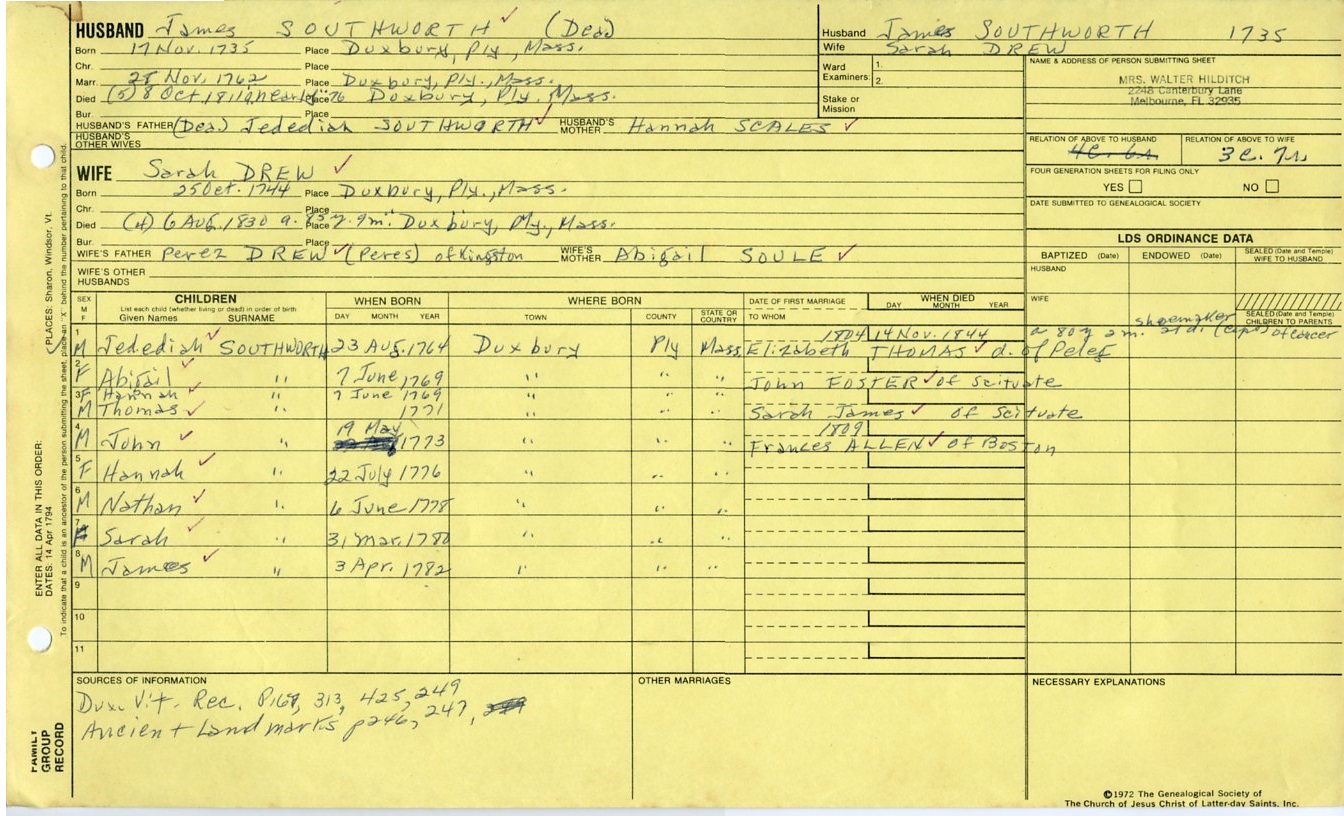 HUSBAND James SOUTHWORTH ✓ (Dea)
Born 17 Nov. 1735 Place Duxbury, Ply, Mass.
Chr. Place
Marr. 28 Nov. 1762 Place Duxbury, Ply., Mass.
Died (5) 8 Oct. 1811 Place Duxbury, Ply. Mass.
Bur. Place
HUSBAND'S FATHER (Dea) Jedediah SOUTHWORTH ✓ HUSBAND'S MOTHER Hannah SCALES ✓
HUSBAND'S OTHER WIVES
WIFE Sarah DREW ✓
Born 25 Oct. 1744 Place Duxbury, Ply., Mass.
Chr. Place
Died (4) 6 Aug. 1830 a. 85 y. 9m. Place Duxbury, Ply., Mass.
Bur. Place
WIFE'S FATHER Perez DREW ✓ (Peres) of Kingston WIFE'S MOTHER Abigail SOULE ✓
WIFE'S OTHER HUSBANDS
Husband James SOUTHWORTH 1735
Wife Sarah DREW
Ward Examiners: 1. 2.
Stake or Mission
NAME & ADDRESS OF PERSON SUBMITTING SHEET
MRS. WALTER HILDITCH
2248 Canterbury Lane
Melbourne, FL 32935
RELATION OF ABOVE TO HUSBAND RELATION OF ABOVE TO WIFE
4c. 6r. 3c. 7r.
FOUR GENERATION SHEETS FOR FILING ONLY
YES NO
DATE SUBMITTED TO GENEALOGICAL SOCIETY
LDS ORDINANCE DATA
BAPTIZED (Date) ENDOWED (Date) SEALED (Date and Temple) WIFE TO HUSBAND
HUSBAND
WIFE
SEALED (Date and Temple) CHILDREN TO PARENTS
SEX M F CHILDREN WHEN BORN WHERE BORN DATE OF FIRST MARRIAGE WHEN DIED
List each child (whether living or dead) in order of birth
Given Names SURNAME DAY MONTH YEAR TOWN COUNTY STATE OR COUNTRY TO WHOM DAY MONTH YEAR
1 M Jedediah ✓ SOUTHWORTH 23 Aug. 1764 Duxbury Ply Mass. 1804 14 Nov. 1844 a 80y 2m. 21d. shoemaker of cancer
Elizabeth THOMAS ✓ d. of Peleg
2 F Abigail ✓ " 7 June 1769 " " " John FOSTER ✓ of Scituate
3 F Hannah " 7 June 1769
M Thomas ✓ " 1771 " " " Sarah James ✓ of Scituate
4 M John ✓ " 19 May 1773 " " " 1809 Frances ALLEN ✓ of Boston
5 F Hannah ✓ " 22 July 1776 " " "
6 M Nathan ✓ " 6 June 1778 " " "
7 F Sarah ✓ " 31 Mar. 1780 " " "
8 M James ✓ " 3 Apr. 1782 " " "
9
10
11
SOURCES OF INFORMATION
Dux. Vit. Rec. P168, 313, 425, 249
Ancient Landmarks p246, 247,
OTHER MARRIAGES
NECESSARY EXPLANATIONS
©1972 The Genealogical Society of
The Church of Jesus Christ of Latter-day Saints, Inc.
PLACES: Sharon, Windsor, Vt.
ENTER ALL DATA IN THIS ORDER:
DATES: 14 Apr 1794
To indicate that a child is an ancestor of the person submitting the sheet, place an "X" behind the number pertaining to that child.
FAMILY GROUP RECORD